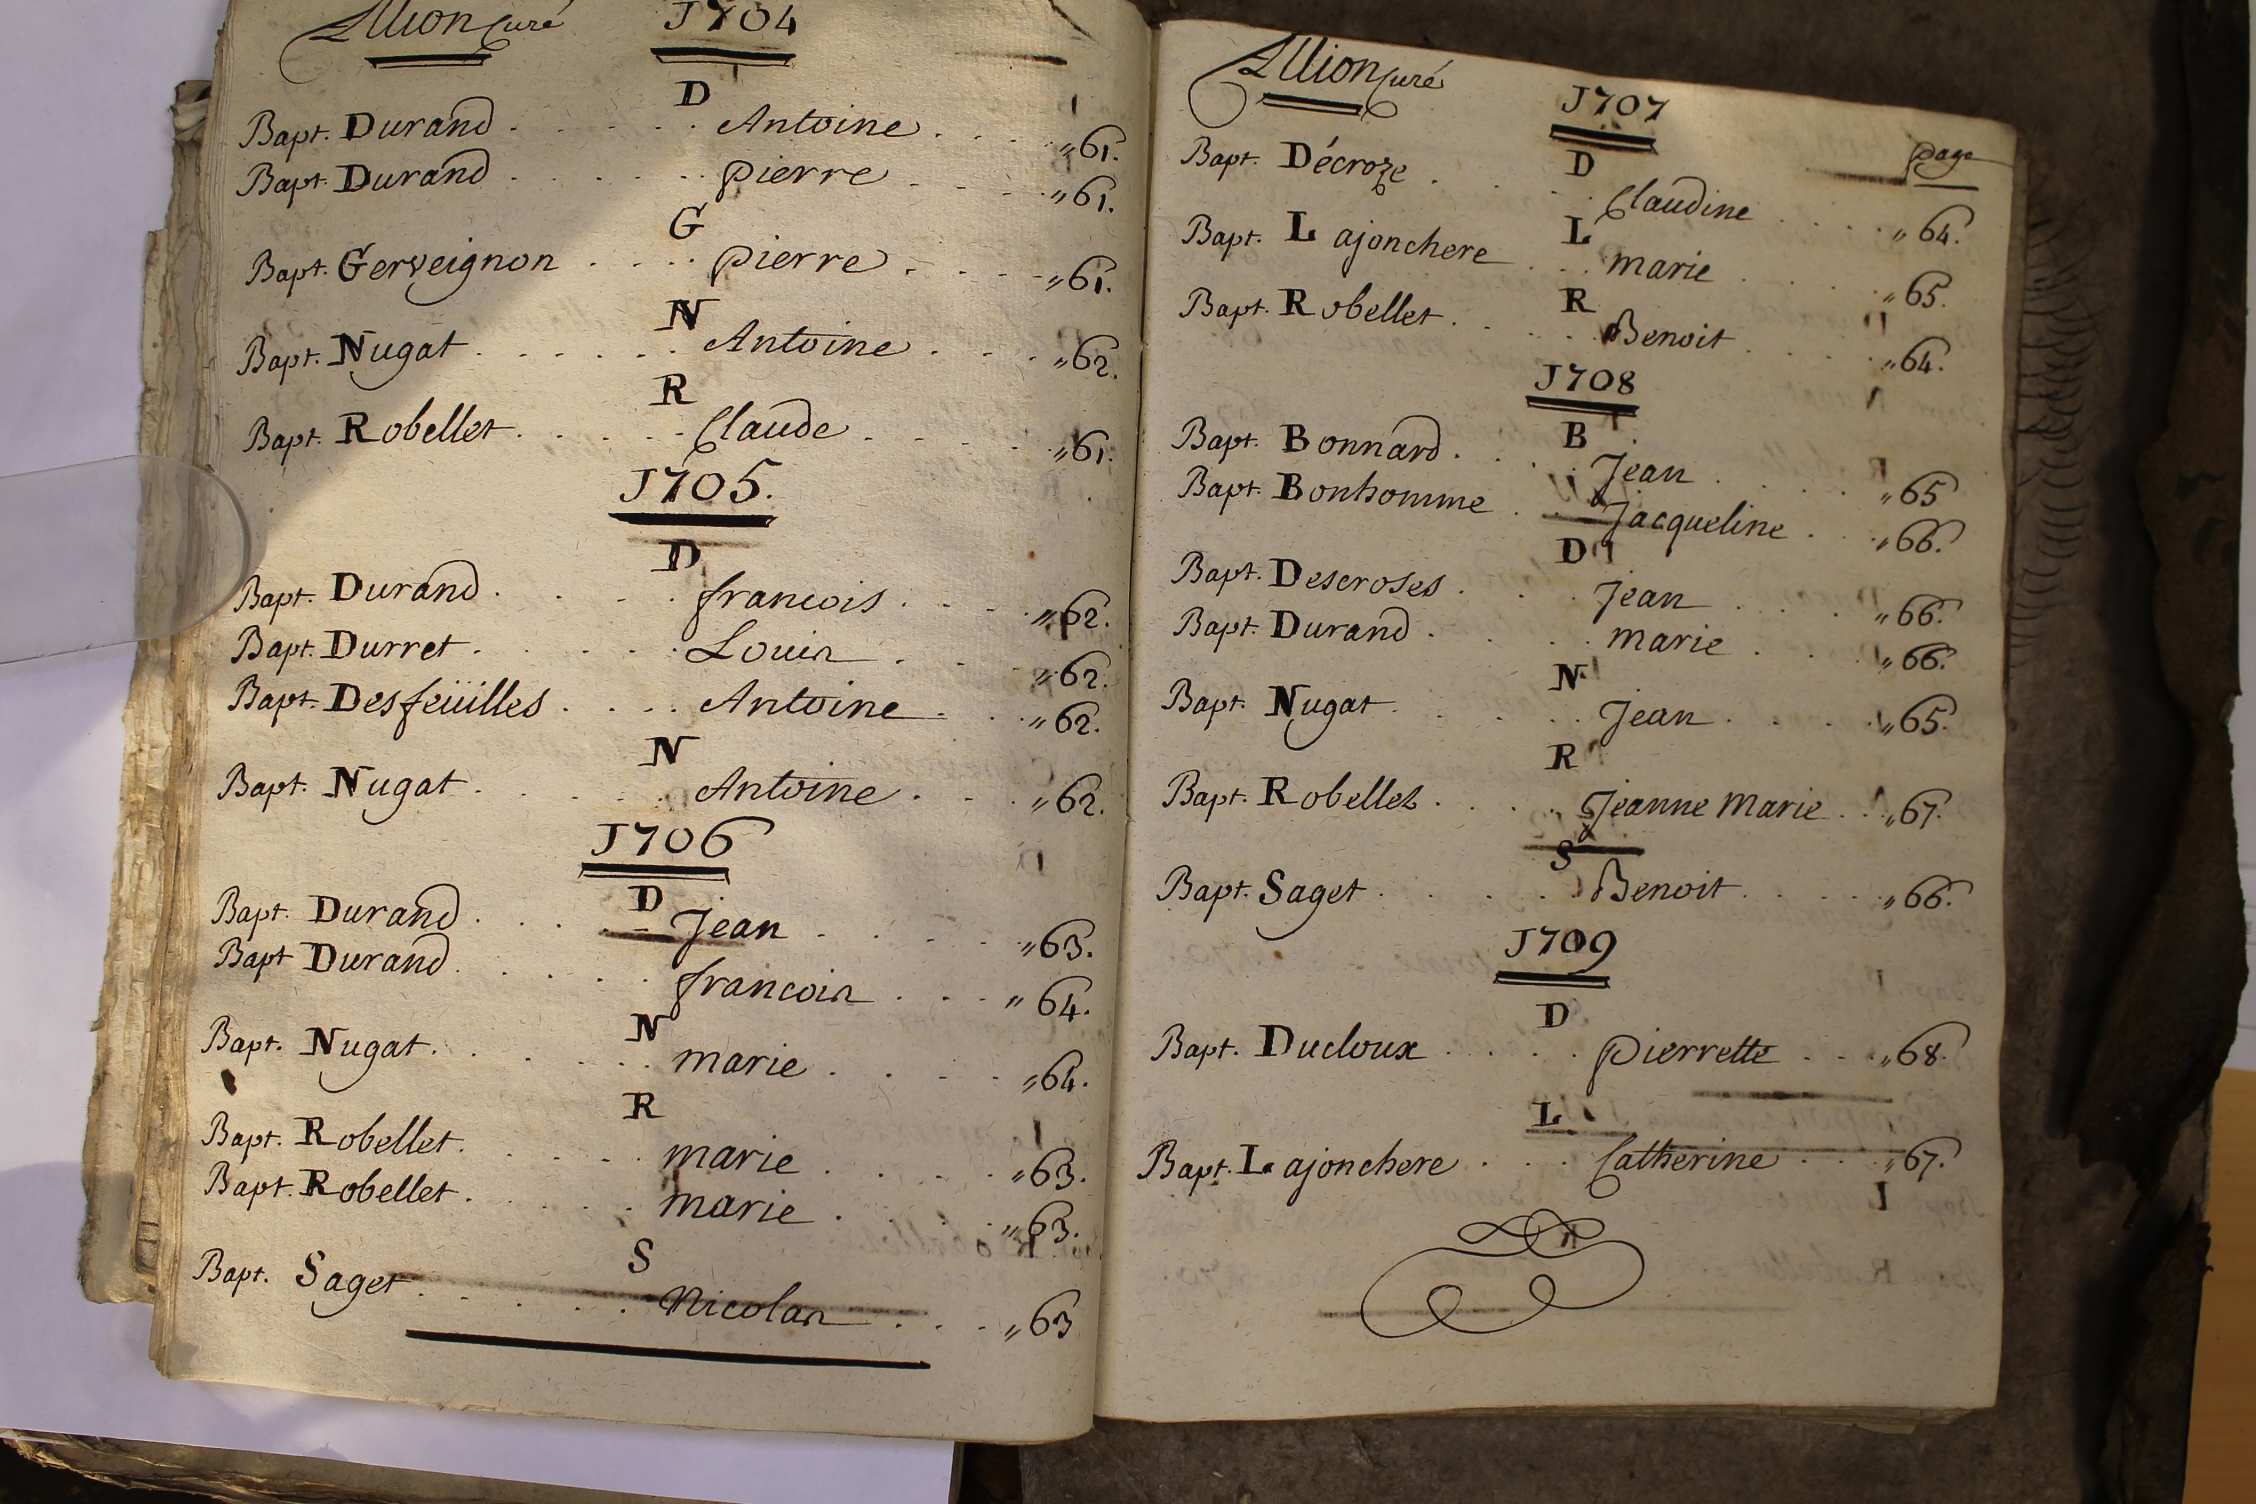 Allion curé J704
D
Bapt. Durand . . . . . Antoine . . . „61.
Bapt. Durand . . . . . pierre . . . „61.
G
Bapt. Gerveignon . . . . pierre . . . . „61.
N
Bapt. Nugat . . . . . . Antoine . . . . „62.
R
Bapt. Robellet . . . . . Claude . . . . . „61.
J705.
D
Bapt. Durand . . . . francois . . . . „62.
Bapt. Durret . . . . . Louis . . . . „62.
Bapt. Desfeüilles . . . . Antoine . . . „62.
N
Bapt. Nugat . . . . . Antoine . . . . „62.
J706
D
Bapt. Durand . . . . Jean . . . . . „63.
Bapt Durand . . . . . francois . . . . „64.
N
Bapt. Nugat . . . . . marie . . . . „64.
R
Bapt. Robellet . . . . . marie . . . . . „63.
Bapt. Robellet . . . . . marie . . . . „63.
S
Bapt. Saget . . . . . . Nicolas . . . „63
Allion curé J707
page
D
Bapt. Décroze . . . . Claudine . . . . „64.
L
Bapt. Lajonchere . . . marie . . . . „65.
R
Bapt. Robellet . . . . Benoit . . . . „64.
J708
B
Bapt. Bonnard . . . . Jean . . . . „65
Bapt. Bonhomme . . Jacqueline . . . „66.
D
Bapt. Descroses . . . . Jean . . . . „66.
Bapt. Durand . . . . marie . . . . „66.
N
Bapt. Nugat . . . . . Jean . . . . „65.
R
Bapt. Robellet . . . . Jeanne Marie . . „67.
S
Bapt. Saget . . . . . Benoit . . . . „66.
J709
D
Bapt. Ducloux . . . . pierrette . . . „68.
L
Bapt. Lajonchere . . . Catherine . . . „67.